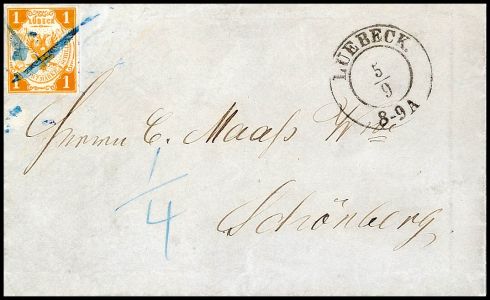 1 1
LÜBECK
1 1
LUEBECK.
5
9
8-9A
Herrn C. Maaß Wwe
1/4
Schönberg.